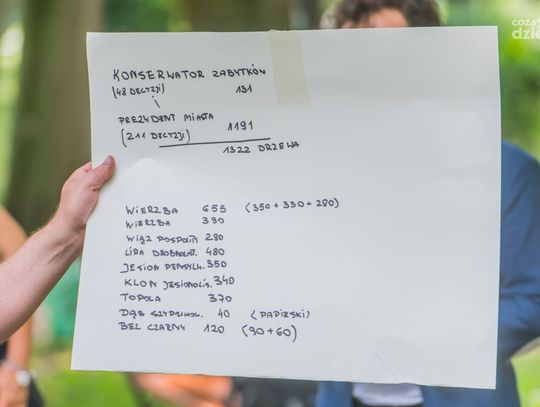 KONSERWATOR ZABYTKÓW
(48 DECYZJI) 131
\
PREZYDENT MIASTA
(211 DECYZJI) 1191
1322 DRZEWA
WIERZBA 655 (350 + 330 + 280)
WIERZBA 390
WIĄZ POSPOLITY 280
LIPA DROBNOLIST. 480
JESION PENSYLW. 350
KLON JESIONOLIS. 340
TOPOLA 370
DĄB SZYPUŁKOW. 40 (PAPIESKI)
BEZ CZARNY 120 (90 + 60)